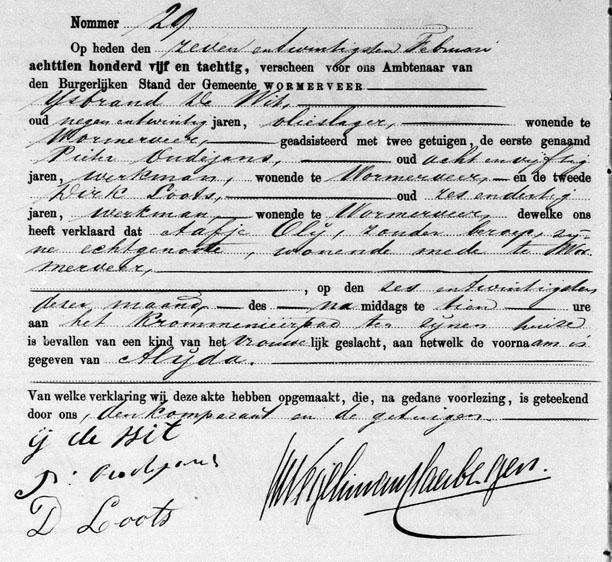 Nommer 29
Op heden den zeven entwintigsten Februari
achttien honderd vijf en tachtig, verscheen voor ons Ambtenaar van
den Burgerlijken Stand der Gemeente WORMERVEER
IJsbrand De Wit,
oud negen entwintig jaren, olieslager, wonende te
Wormerveer, geadsisteerd met twee getuigen, de eerste genaamd
Pieter Oudejans, oud acht en vijftig
jaren, werkman, wonende te Wormerveer, en de tweede
Dirk Loots, oud zes endertig
jaren, werkman, wonende te Wormerveer, dewelke ons
heeft verklaard dat Aafje Olij, zonder beroep, zij-
ne echtgenoote, wonende mede te Wor-
merveer,
, op den zes entwintigsten
dezer maand des na middags te tien ure
aan het Krommenieërpad ten zijnen huize
is bevallen van een kind van het vrouwelijk geslacht, aan hetwelk de voornaam is
gegeven van Alijda.
Van welke verklaring wij deze akte hebben opgemaakt, die, na gedane voorlezing, is geteekend
door ons, den komparant en de getuigen.
ij de Wit
P: Oudejans
D Loots